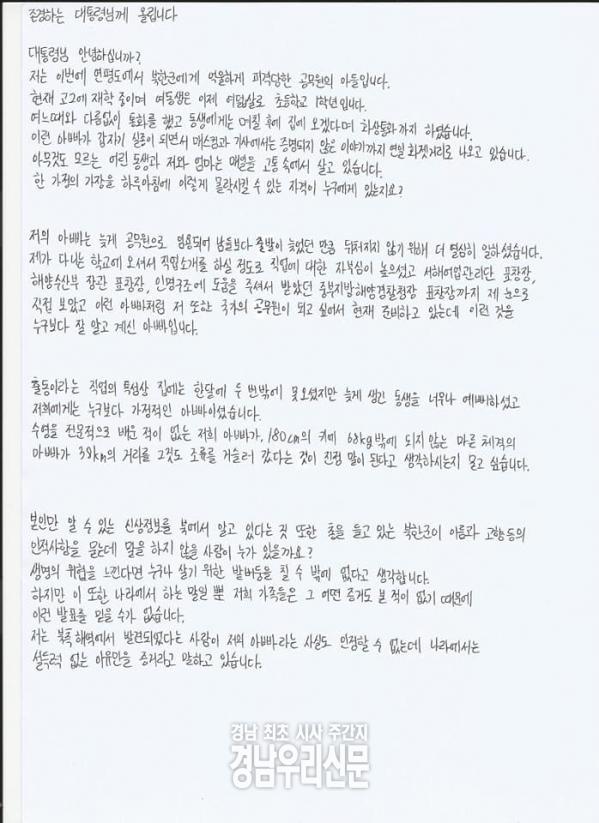 존경하는 대통령님께 올립니다
대통령님 안녕하십니까?
저는 이번에 연평도에서 북한군에게 억울하게 피격당한 공무원의 아들입니다.
현재 고2에 재학 중이며 여동생은 이제 여덟살로 초등학교 1학년입니다.
여느때와 다름없이 통화를 했고 동생에게는 며칠 후에 집에 오겠다며 화상통화까지 하였습니다.
이런 아빠가 갑자기 실종이 되면서 매스컴과 기사에서는 증명되지 않은 이야기까지 연일 화젯거리로 나오고 있습니다.
아무것도 모르는 어린 동생과 저와 엄마는 매일을 고통 속에서 살고 있습니다.
한 가정의 가장을 하루아침에 이렇게 몰락시킬 수 있는 자격이 누구에게 있는지요?
저의 아빠는 늦게 공무원으로 임용되어 남들보다 출발이 늦었던 만큼 뒤처지지 않기 위해 더 열심히 일하셨습니다.
제가 다니는 학교에 오셔서 직업소개를 하실 정도로 직업에 대한 자부심이 높으셨고 서해어업관리단 표창장,
해양수산부 장관 표창장, 인명구조에 도움을 주셔서 받았던 중부지방해양경찰청장 표창장까지 제 눈으로
직접 보았고 이런 아빠처럼 저 또한 국가의 공무원이 되고 싶어서 현재 준비하고 있는데 이런 것을
누구보다 잘 알고 계신 아빠입니다.
출동이라는 직업의 특성상 집에는 한달에 두 번밖에 못오셨지만 늦게 생긴 동생을 너무나 예뻐하셨고
저희에게는 누구보다 가정적인 아빠이셨습니다.
수영을 전문적으로 배운 적이 없는 저희 아빠가, 180cm의 키에 68kg밖에 되지 않는 마른 체격의
아빠가 38km의 거리를 그것도 조류를 거슬러 갔다는 것이 진정 말이 된다고 생각하시는지 묻고 싶습니다.
본인만 알 수 있는 신상정보를 북에서 알고 있다는 것 또한 총을 들고 있는 북한군이 이름과 고향 등의
인적사항을 묻는데 말을 하지 않을 사람이 누가 있을까요?
생명의 위협을 느낀다면 누구나 살기 위한 발버둥을 칠 수 밖에 없다고 생각합니다.
하지만 이 또한 나라에서 하는 말일 뿐 저희 가족들은 그 어떤 증거도 본 적이 없기 때문에
이런 발표를 믿을 수가 없습니다.
저는 북측 해역에서 발견되었다는 사람이 저의 아빠라는 사실도 인정할 수 없는데 나라에서는
설득력 없는 이유만을 증거라고 말하고 있습니다.
경남 최초 시사 주간지
경남우리신문